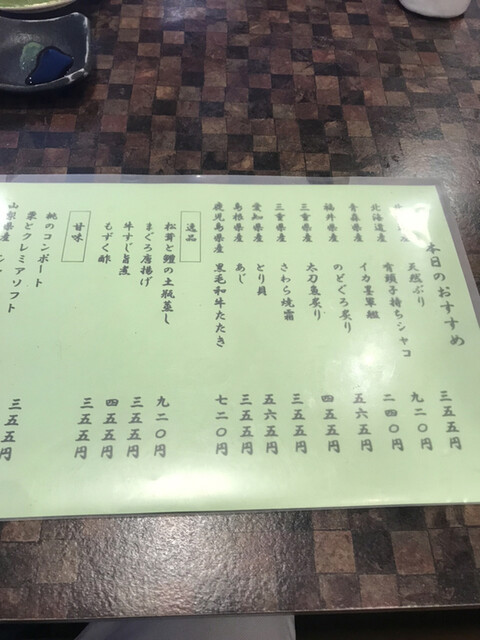 本日のおすすめ
天然ぶり 三五五円
北海道産 青頭子持ちシャコ 九二〇円
青森県産 イカ墨軍艦 二四〇円
福井県産 のどぐろ炙り 五六五円
三重県産 太刀魚炙り 四五五円
三重県産 さわら焼霜 三五五円
愛知県産 とり貝 五六五円
島根県産 あじ 三五五円
鹿児島県産 黒毛和牛たたき 七二〇円
逸品
松茸と鱧の土瓶蒸し 九二〇円
まぐろ唐揚げ 三五五円
牛すじ旨煮 四五五円
もずく酢 三五五円
甘味
桃のコンポート
栗とクレミアソフト 三五五円
山梨県産